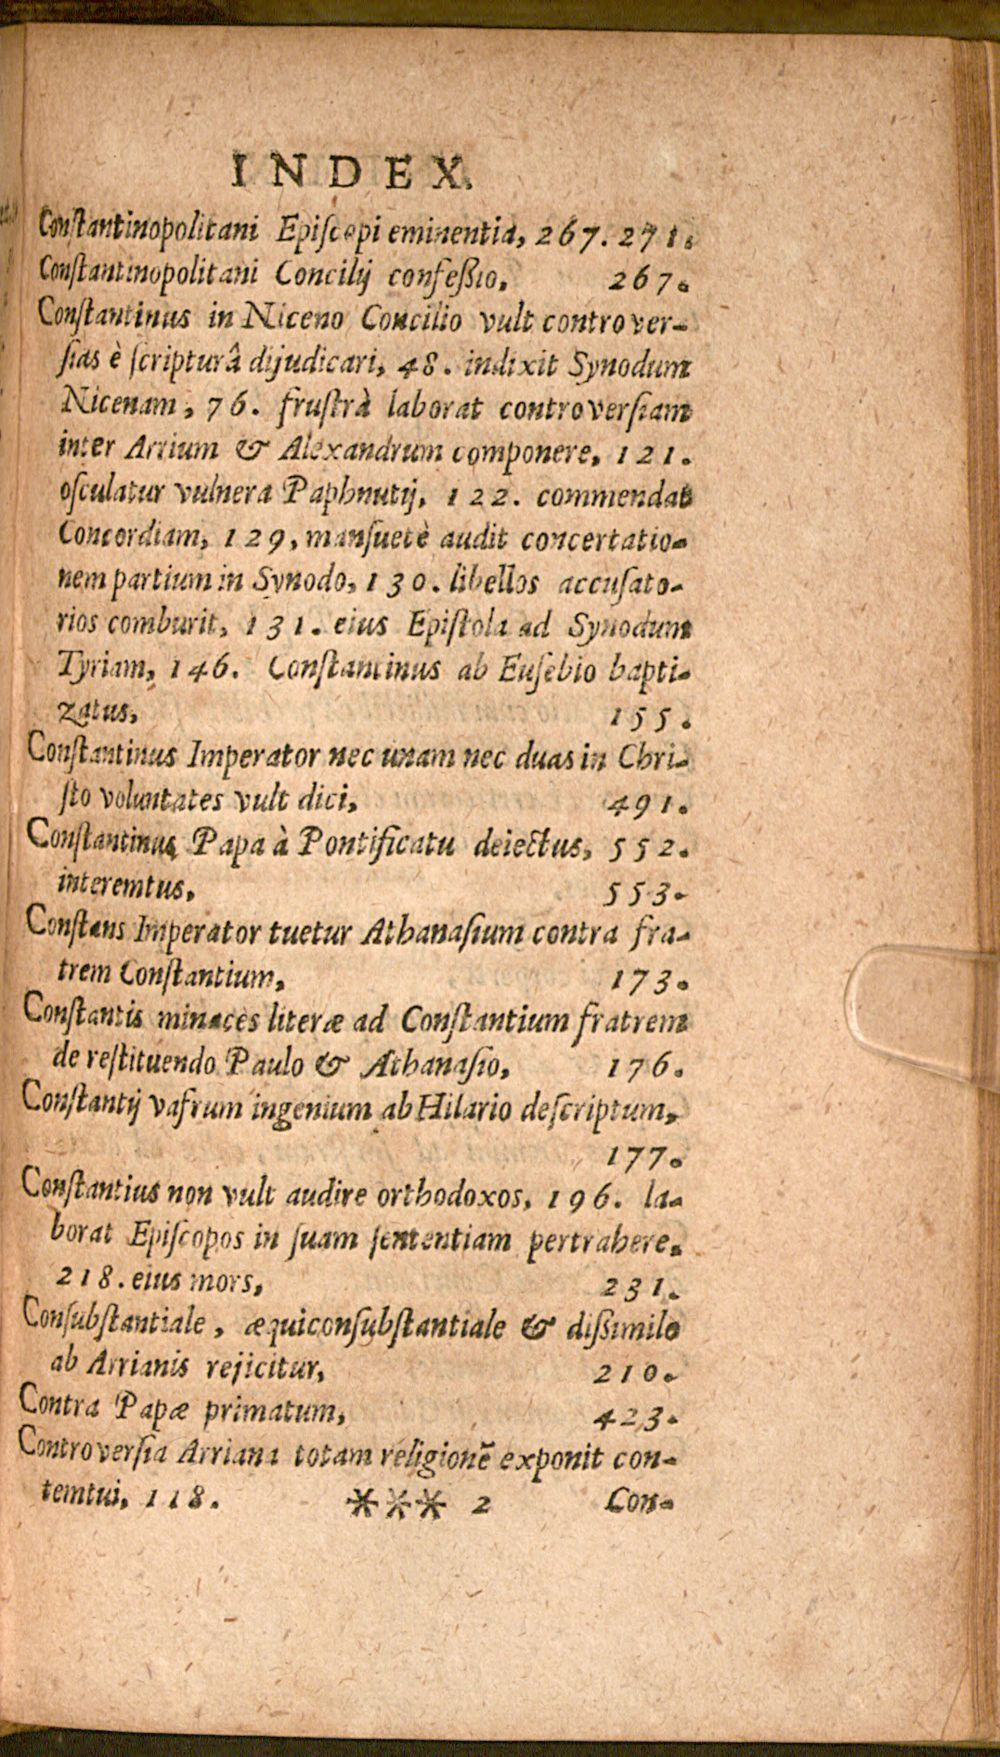 INDEX.
Conſtantinopolitani Epiſcopi eminentia, 267. 271.
Conſtantinopolitani Concilij confeßio, 267.
Conſtantinus in Niceno Concilio vult controver-
ſias è ſcripturâ dijudicari, 48. indixit Synodum
Nicenam, 76. fruſtrà laborat controverſiam
inter Arrium & Alexandrum componere, 121.
oſculatur vulnera Paphnutij, 122. commendat
Concordiam, 129, manſuetè audit concertatio-
nem partium in Synodo, 130. libellos accuſato-
rios comburit, 131. eius Epiſtola ad Synodum
Tyriam, 146. Conſtantinus ab Euſebio bapti-
zatus, 155.
Conſtantinus Imperator nec unam nec duas in Chri-
ſto voluntates vult dici, 491.
Conſtantinus Papa à Pontificatu deiectus, 552.
interemtus, 553.
Conſtans Imperator tuetur Athanaſium contra fra-
trem Conſtantium, 173.
Conſtantis minaces literæ ad Conſtantium fratrem
de reſtituendo Paulo & Athanaſio, 176.
Conſtantij vafrum ingenium ab Hilario deſcriptum,
177.
Conſtantius non vult audire orthodoxos, 196. la-
borat Epiſcopos in ſuam ſententiam pertrahere,
218. eius mors, 231.
Conſubſtantiale, æquiconſubſtantiale & dißimile
ab Arrianis rejicitur, 210.
Contra Papæ primatum, 423.
Controverſia Arriana totam religionē exponit con-
temtui, 118. *** 2 Con-